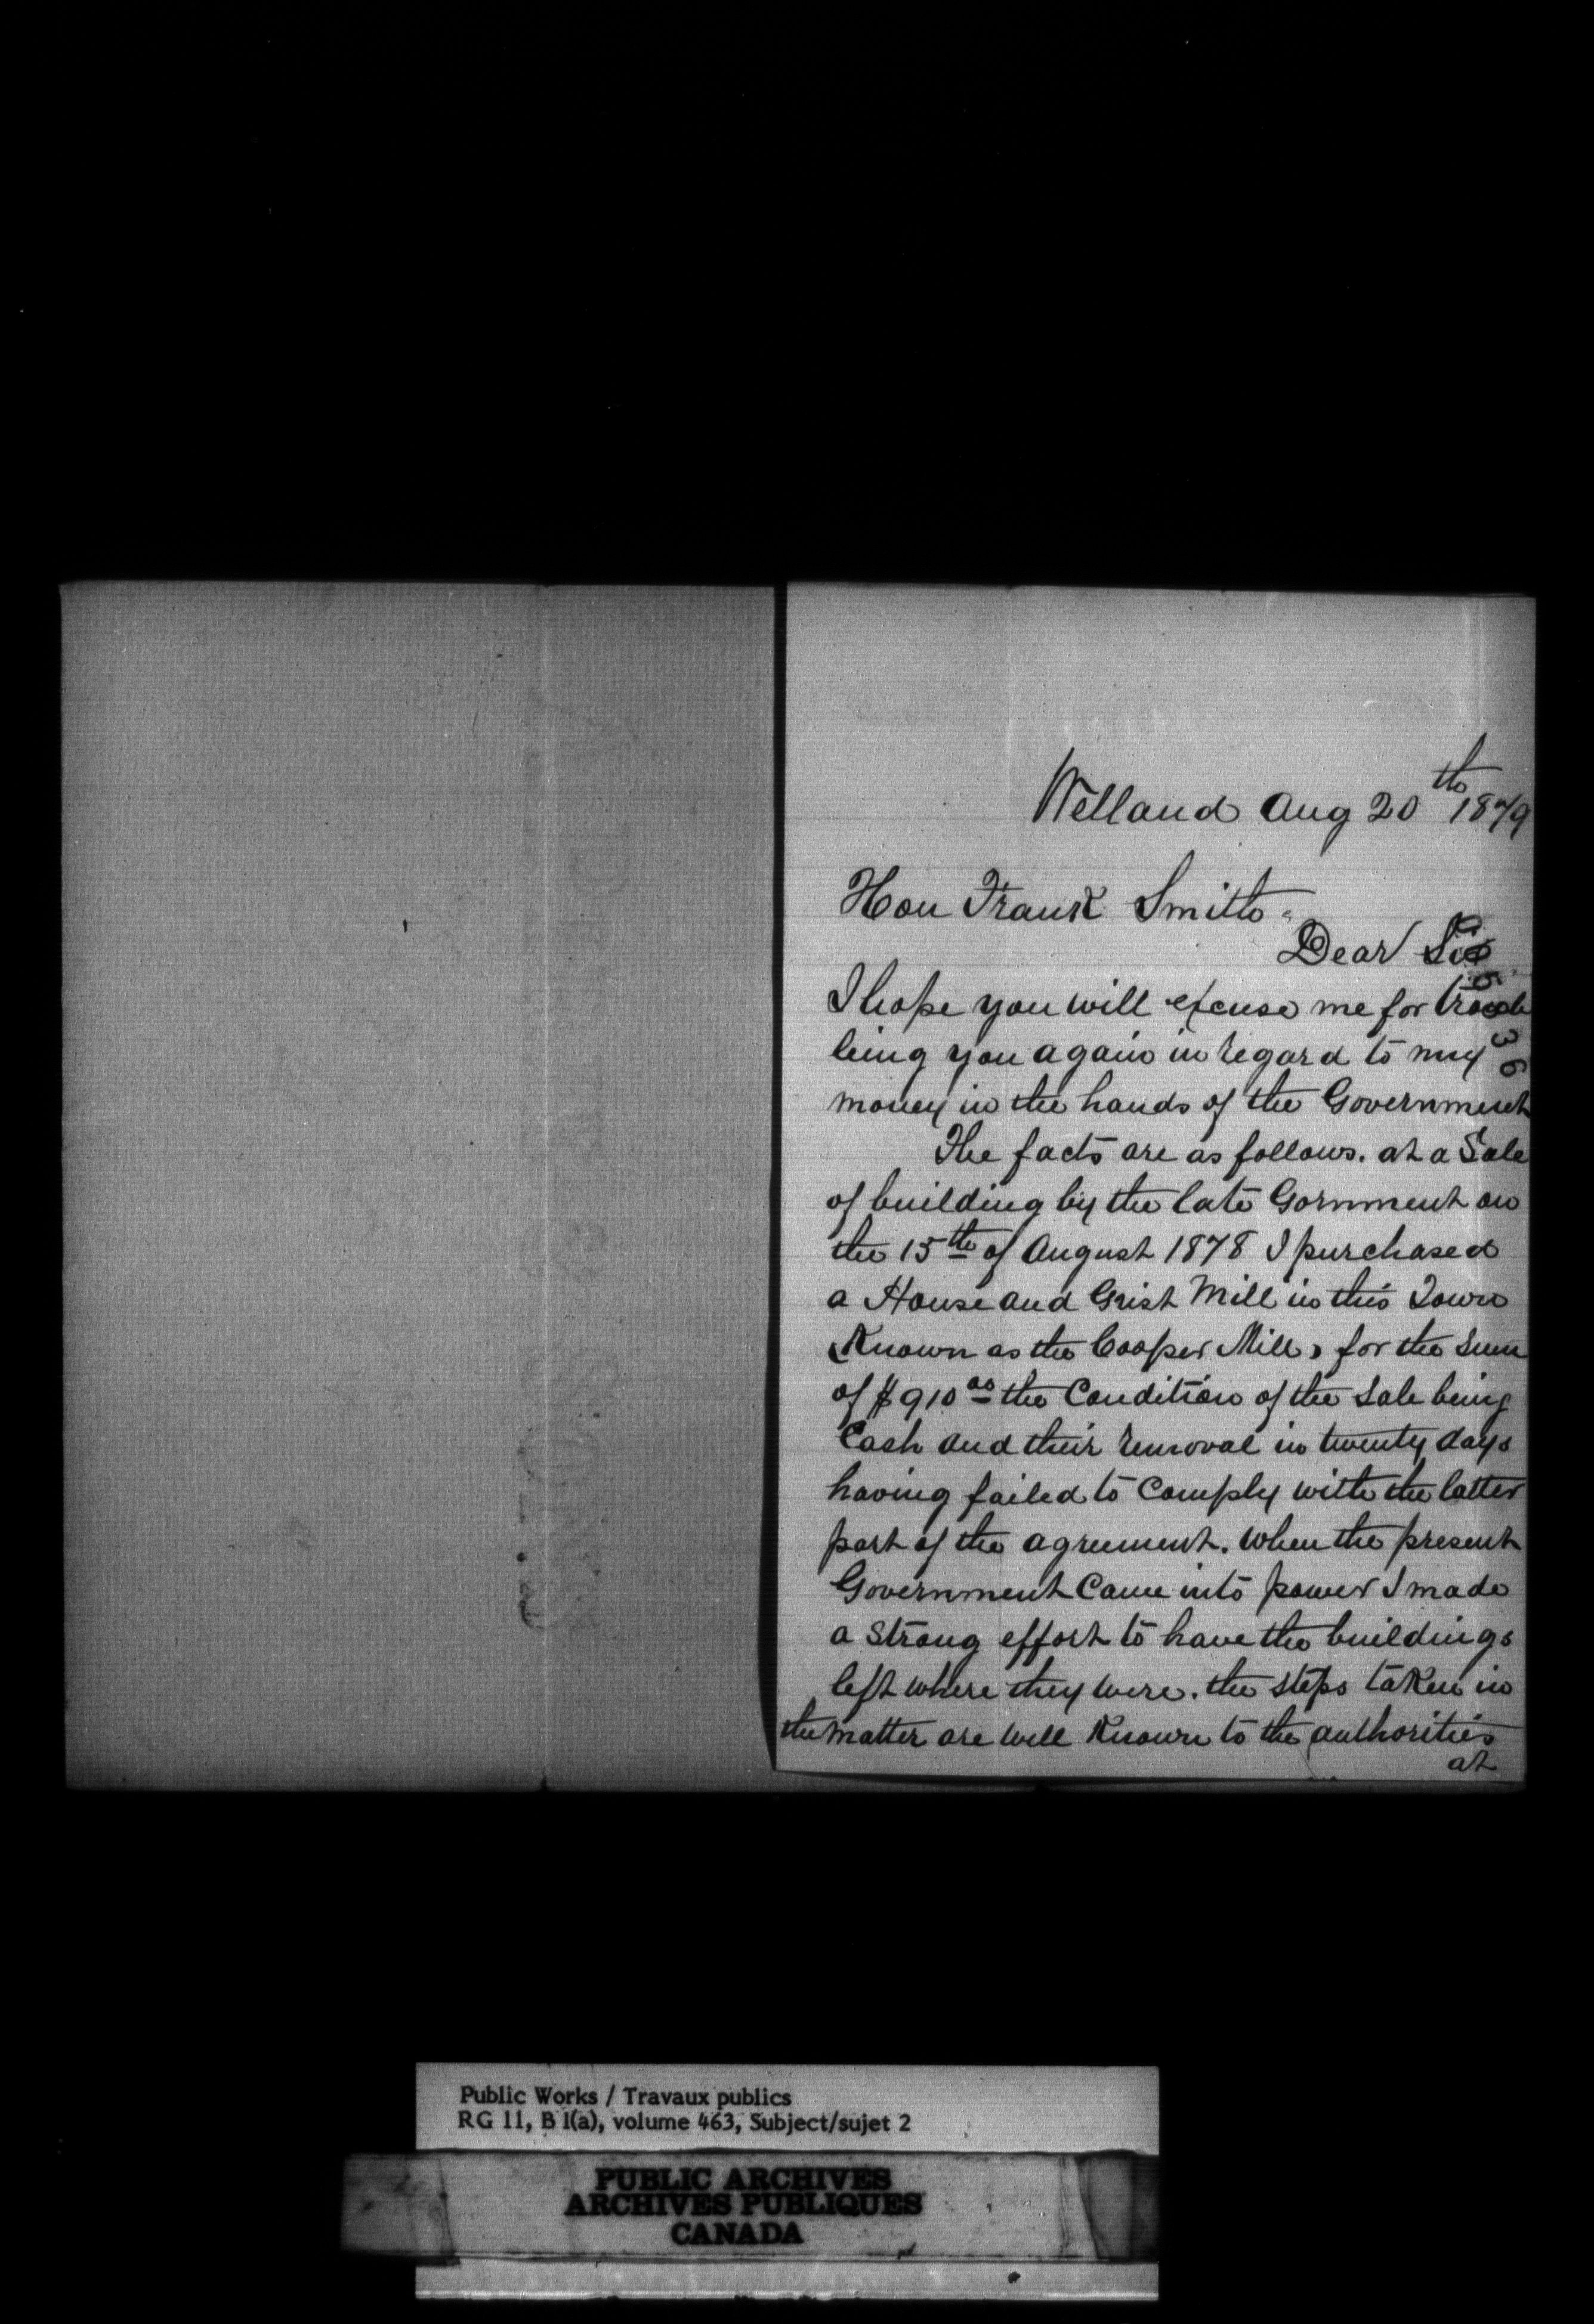 Welland Aug 20th 1879
Hon Frank Smith
Dear Sir
I hope you will excuse me for troub
ling you again in regard to my
money in the hands of the Government
The facts are as follows. at a Sale
of building by the late Gornment on
the 15th of August 1878 I purchased
a House and Grist Mill in this Town
Known as the Cooper Mill, for the sum
of $910 00 the Condition of the Sale being
Cash and their removal in twenty days
having failed to Comply with the latter
part of the agreement. When the present
Government Came into power I made
a Strong effort to have the buildings
left where they were. the steps taken in
the matter are well Known to the authorities
at
Public Works / Travaux publics
RG 11, B 1(a), volume 463, Subject/sujet 2
PUBLIC ARCHIVES
ARCHIVES PUBLIQUES
CANADA